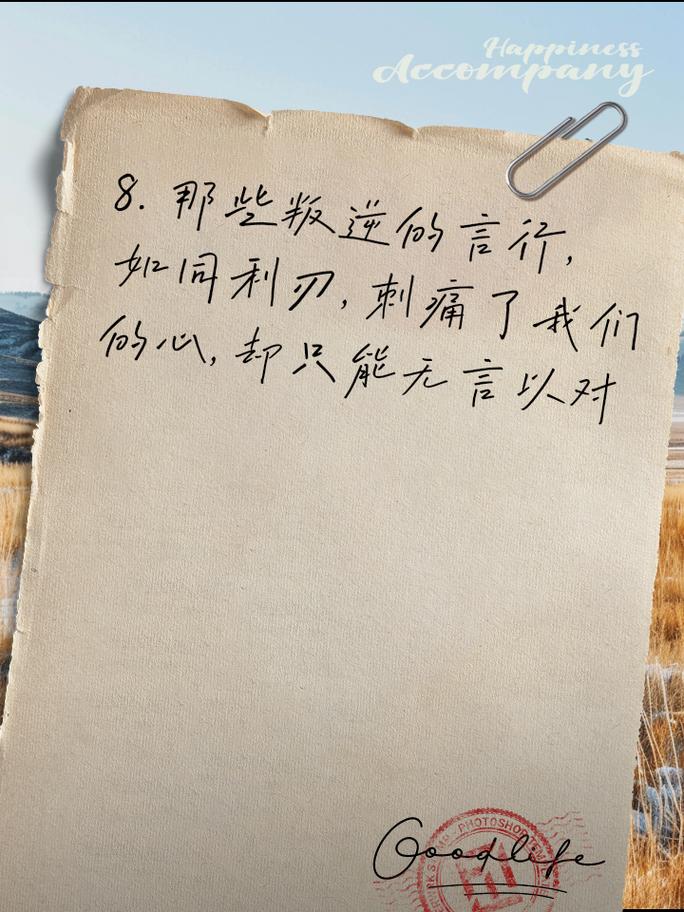 Happiness
Accompany
8. 那些叛逆的言行,
如同利刃, 刺痛了我们
的心, 却只能无言以对
PHOTOSHOP
Goodlife